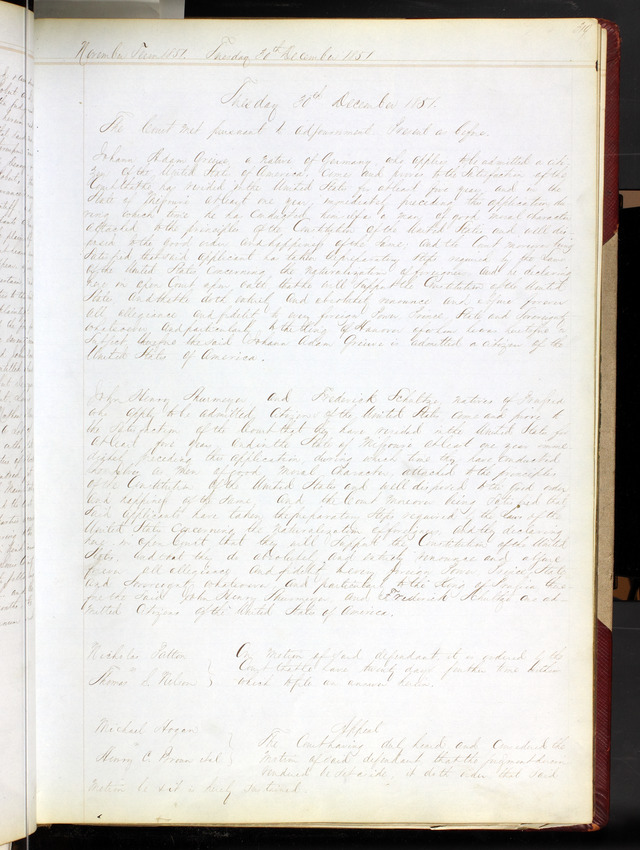 November Term 1851. Tuesday 30th December 1851
Tuesday 30th December 1851.
The Court met pursuant to adjournment. Present as before.
Johann Adam Greene, a native of Germany, who applies to be admitted a citi-
zen of the United States of America, comes and proves to the satisfaction of the
Court that he has resided in the United States for at least five years and in the
State of Missouri at least one year, immediately preceding this application du-
ring which time he has conducted himself as a man of good moral character
attached to the principles of the Constitution of the United States and well dis-
posed to the good order and happiness of the same, and the Court moreover being
satisfied that said applicant has taken the preparatory steps required by the laws
of the United States concerning the naturalization of foreigners and he declaring
here in open Court upon oath that he will support the Constitution of the United
States and that he doth entirely and absolutely renounce and abjure forever
all allegiance and fidelity to every foreign Power, Prince, State and Sovereignty
whatsoever and particularly to the King of Hanover of whom he was heretofore a
subject therefore the said Johann Adam Greene is admitted a citizen of the
United States of America.
John Henry and Frederick Schultze, natives of Prussia
who apply to be admitted Citizens of the United States come and prove to
the satisfaction of the Court that they have resided in the United States for
at least five years and in the State of Missouri at least one year imme-
diately preceding this application, during which time they have conducted
themselves as men of good moral character, attached to the principles
of the Constitution of the United States and well disposed to the good order
and happiness of the same. And the Court moreover being satisfied that
said applicants have taken the preparatory steps required by the laws of the
United States concerning the naturalization of foreigners and they declaring
here in open Court that they will support the Constitution of the United
States and that they do absolutely and entirely renounce and abjure
forever all allegiance and fidelity to every foreign Power, Prince, State
and Sovereignty whatsoever and particularly to the King of Prussia there-
fore the said John Henry and Frederick Schultze are ad-
mitted Citizens of the United States of America.
Nicholas Patton
vs
Thomas S. Nelson
On motion of said defendant it is ordered by the
Court that he have twenty days further time
which to file an answer herein.
Michael Hogan
vs
Henry C.
Appeal
The Court having duly heard and considered the
motion of said defendant that the judgment herein
rendered be set aside, it doth order that said
motion be & it is hereby sustained.